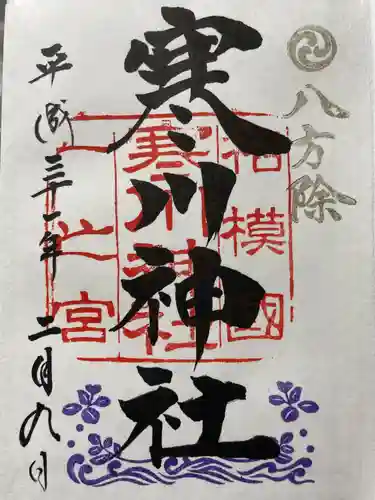 八方除
寒川神社
相模國
寒川神社
一之宮
平成三十一年二月九日